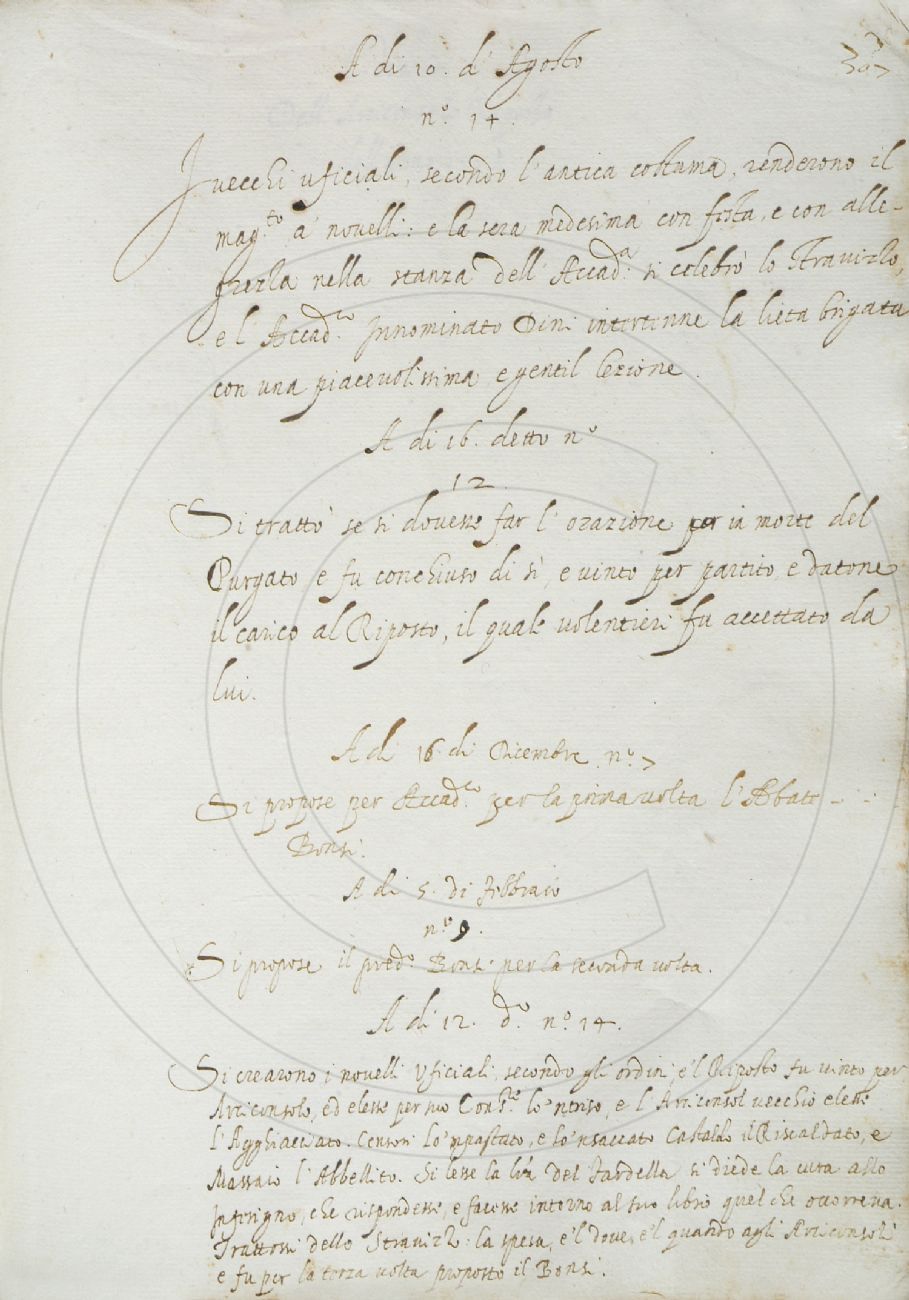 A di 10. d'Agosto
n.° 14.
I vecchi uficiali, secondo l'antica costuma, renderono il
mag.to a' novelli: e la sera medesima con festa, e con alle-
grezza nella stanza dell'Accad.a si celebrò lo Stravizzo,
e l'Accad.co Innominato Dini intertenne la lieta brigata
con una piacevolissima e gentil lezione.
A di 16. detto n.°
12.
Si trattò se si dovesse far l'orazione per la morte del
Purgato e fu conchiuso di sì, e vinto per partito, e datone
il carico al Riposto, il quale volentieri fu accettato da
lui.
A di 16. di Dicembre n.° 7
Si propose per Accad.co per la prima volta l'Abate
Bonsi.
A di 5. di Febbraio
n.° 9.
Si propose il pred.o Bonsi per la seconda volta.
A di 12. d.o n.° 14.
Si crearono i novelli Uficiali, secondo gli ordini, e'l Riposto fu vinto per
Arciconsolo, ed elesse per suo Cons.re lo'ntriso, e l'Arciconsol vecchio elesse
l'Agghiacciato. Censori lo'mpastato, e lo'nsaccato Castaldo il Riscaldato, e
Massaio l'Abbellito. Si lesse la lra del Tardella si diede la cura allo
Inferigno, che rispondesse, e facesse intorno al suo libro quel che occorreva.
Trattossi dello Stravizzo: la spesa, e'l dove, e'l quando agli Arciconsoli
e fu per la terza volta proposto il Bonsi.